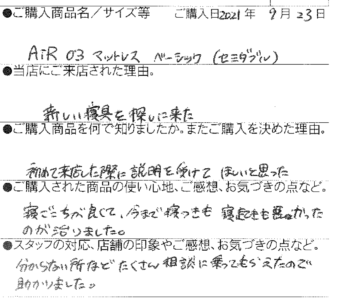 ●ご購入商品名／サイズ等 ご購入日2021年9月23日
AiR 03 マットレス ベーシック (セミダブル)
●当店にご来店された理由。
新しい寝具を探しに来た
●ご購入商品を何で知りましたか。またご購入を決めた理由。
初めて来店した際に説明を受けて ほしいと思った
●ご購入された商品の使い心地、ご感想、お気づきの点など。
寝ごこちが良くて、今まで寝つきも 寝起きも悪かった
のが治りました。
●スタッフの対応、店舗の印象やご感想、お気づきの点など。
分からない所など たくさん 相談に乗ってもらえたので
助かりました。